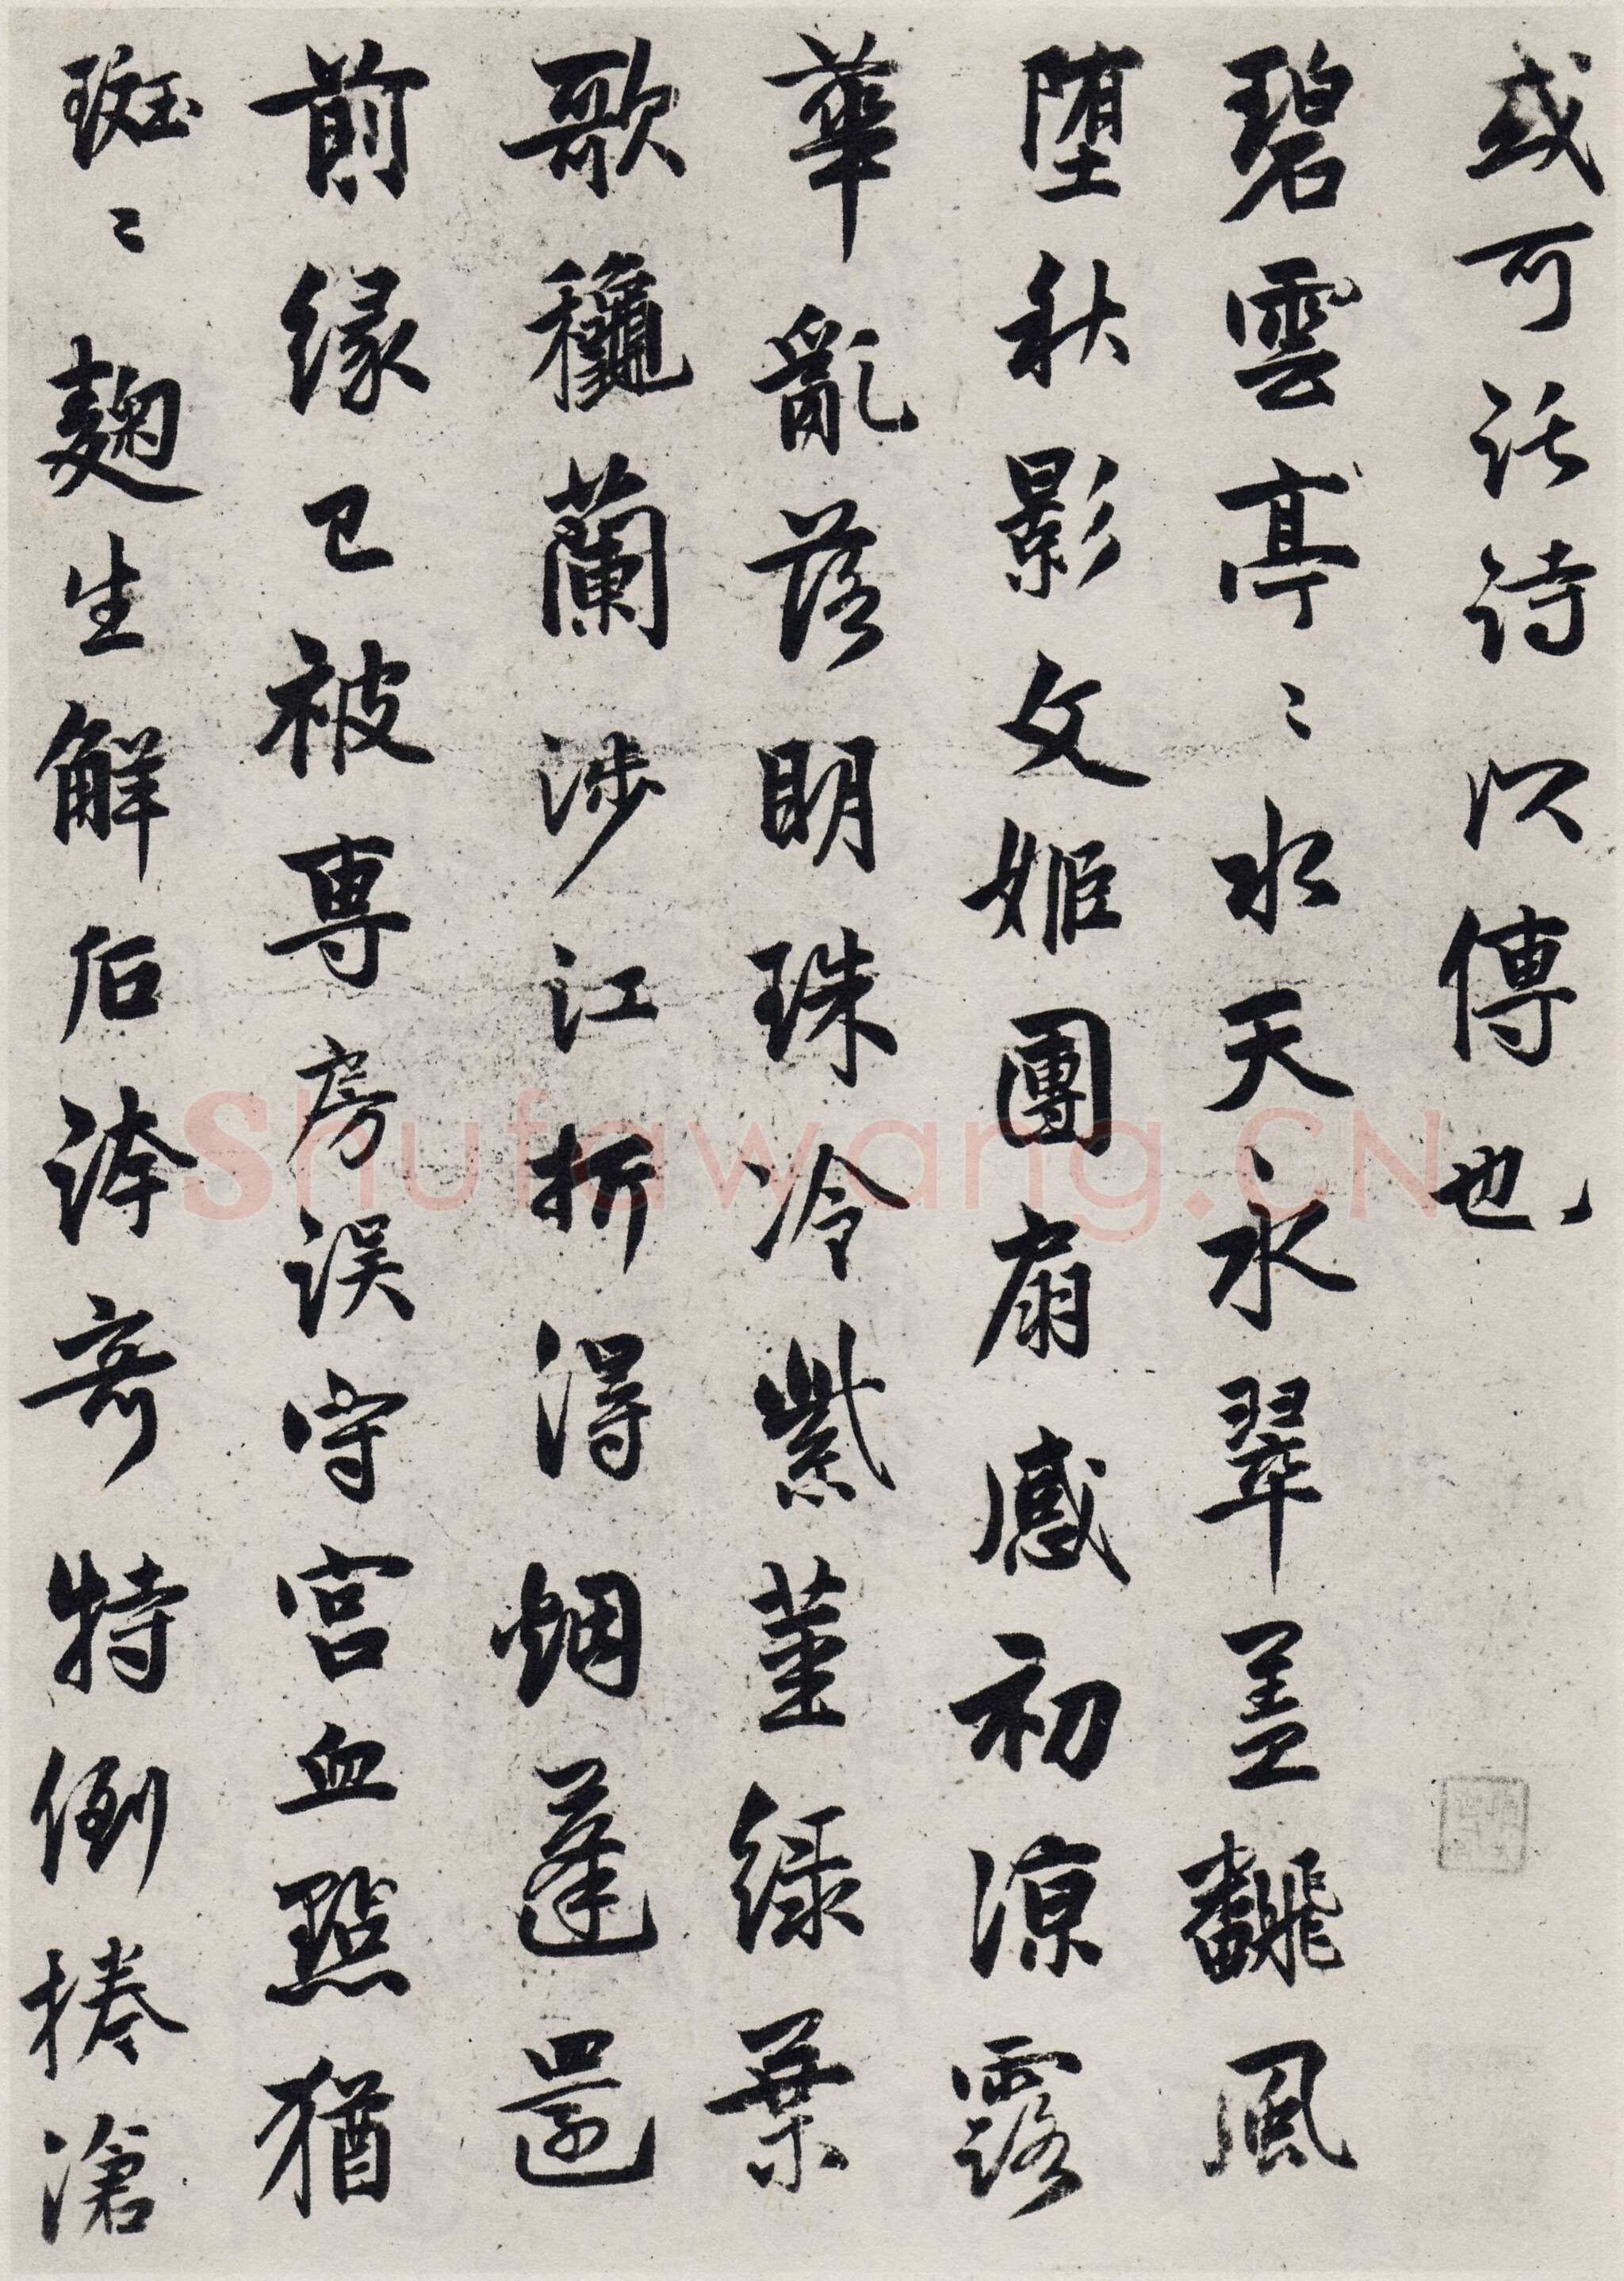 或可託詩以傳也
碧雲亭〻水天永翠蓋翻風
堕秋影文姬團扇感初涼露
華亂落明珠冷紫莖綠葉
歌穐蘭涉江折得烟蓬還
前緣已被專房誤守宮血點猶
斑〻麴生解后誇奇特倒捲滄
Shufawang.CN